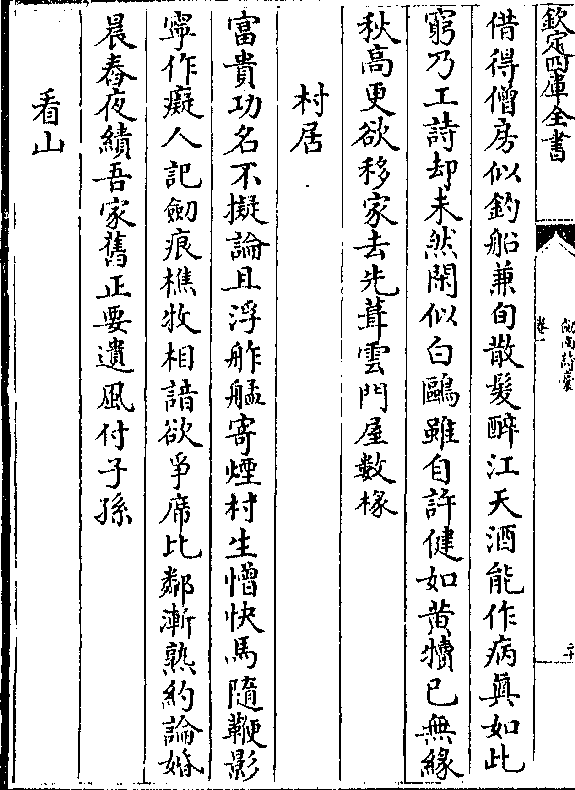 欽定四庫全書
卷一
借得僧房似釣船兼旬散髮醉江天酒能作病眞如此
窮乃工詩却未然閑似白鷗雖自許健如黃犢已無緣
秋高更欲移家去先葺雲門屋數椽
村居
富貴功名不擬論且浮舴艋寄煙村生憎快馬隨鞭影
寧作癡人記劒痕樵牧相諳欲爭席比鄰漸熟約論婚
晨舂夜績吾家舊正要遺風付子孫
看山